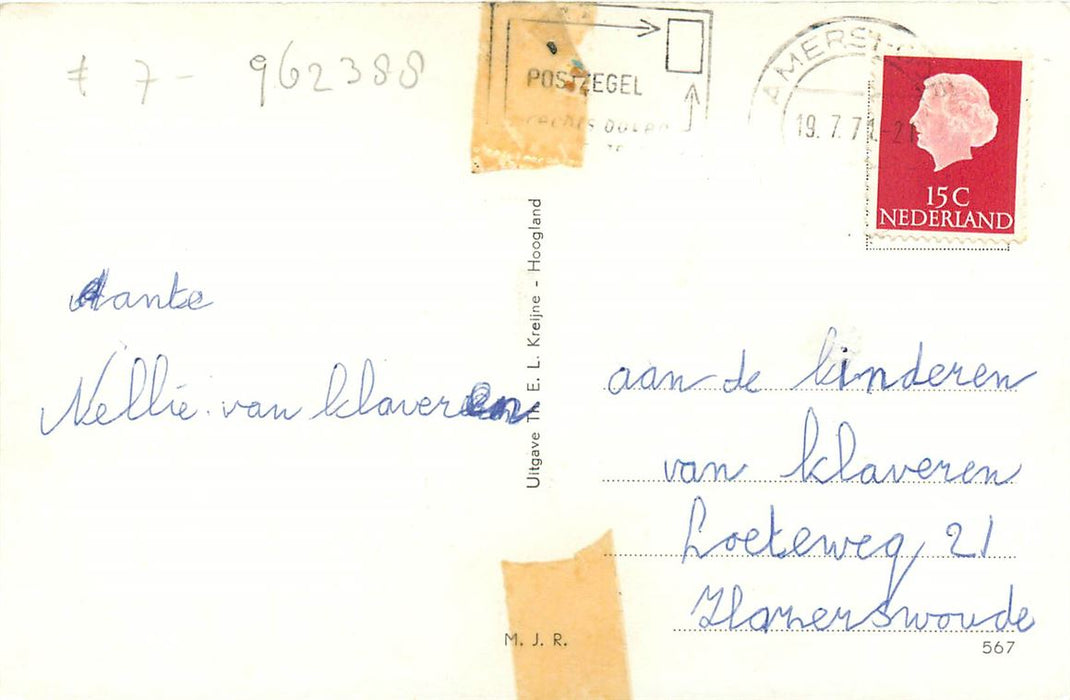 7-
962388
POSTZEGEL
RECHTS BOVEN
AMERSF
19.7.7
-21
15 C
NEDERLAND
Aante
Nellie van klaveren
Uitgave Th. E. L. Kreijne - Hoogland
aan de kinderen
van klaveren
Loeteweg 21
Hazerswoude
M. J. R.
567